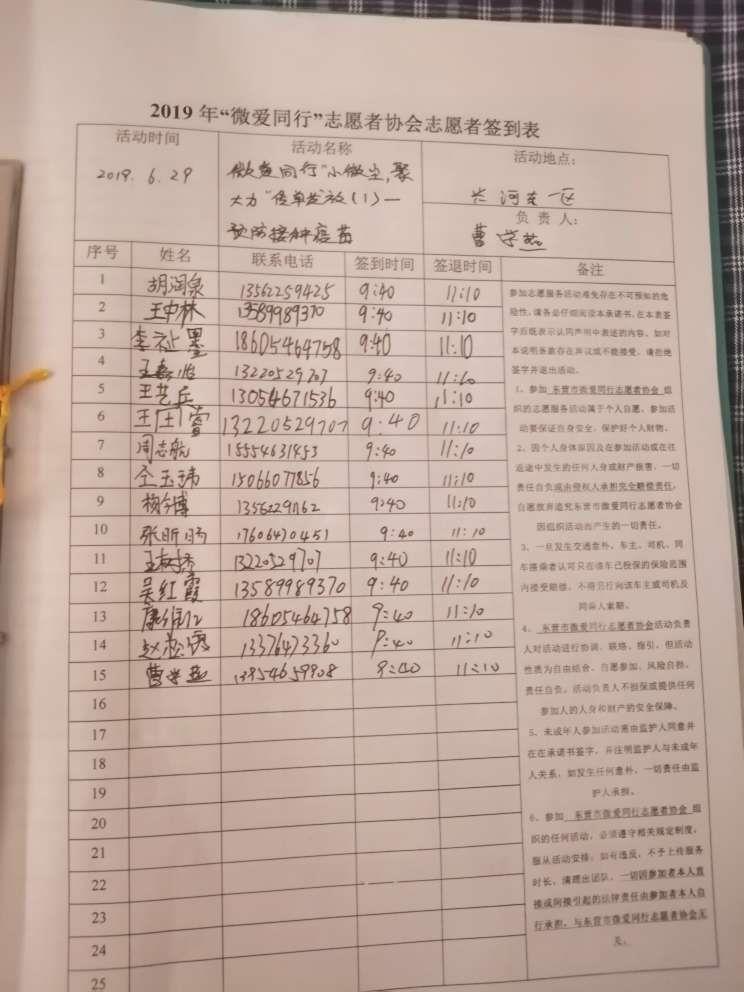 2019 年“微爱同行”志愿者协会志愿者签到表
活动时间
2019.6.29
活动名称
微爱同行"小微尘,聚
大力"传单发放(1)—
预防接种疫苗
活动地点:
长河东一区
负 责 人:
曹
序号 姓名 联系电话 签到时间 签退时间 备注
1 胡润泉 13562259425 9:40 11:10
2 王中林 13589989370 9:40 11:10
3 李祉墨 18605464758 9:40 11:10
4 王 13220529707 9:40 11:10
5 王艺兵 13054671536 9:40 11:10
6 王 睿 13220529707 9:40 11:10
7 周志航 15554631453 9:40 11:10
8 仝玉玮 15066077856 9:40 11:10
9 杨 博 9:40 11:10
10 张昕旸 17606470451 9:40 11:10
11 王 13220529707 9:40 11:10
12 吴红霞 13589989370 9:40 11:10
13 康 18605464758 9:40 11:10
14 赵松 13376473360 9:40 11:10
15 曹 13954659908 9:40 11:10
16
17
18
19
20
21
22
23
24
25
参加志愿服务活动难免存在不可预知的危
险性,请务必仔细阅读本承诺书,在本表签
字后既表示认同声明中表述的内容。如对
本说明条款存在异议或不能接受,请拒绝
签字并退出活动。
1、参加 东营市微爱同行志愿者协会 组
织的志愿服务活动属于个人自愿。参加活
动要保证自身安全,保护好个人财物。
2、因个人身体原因及在参加活动或在往
返途中发生的任何人身或财产损害,一切
责任自负或由侵权人承担完全赔偿责任,
自愿放弃追究东营市微爱同行志愿者协会
因组织活动而产生的一切责任。
3、一旦发生交通意外,车主、司机、同
车搭乘者认可只在该车已投保的保险范围
内接受赔偿,不得另行向该车主或司机及
同乘人索赔。
4、 东营市微爱同行志愿者协会活动负责
人对活动进行协调、联络、指引,但活动
性质为自由结合、自愿参加、风险自担、
责任自负。活动负责人不担保或提供任何
参加人的人身和财产的安全保障。
5、未成年人参加活动需由监护人同意并
在在承诺书签字,并注明监护人与未成年
人关系,如发生任何意外,一切责任由监
护人承担。
6、参加 东营市微爱同行志愿者协会 组
织的任何活动,必须遵守相关规定制度,
服从活动安排;如有违反,不予上传服务
时长,清理出团队,一切因参加者本人直
接或间接引起的法律责任由参加者本人自
行承担,与东营市微爱同行志愿者协会无
关。